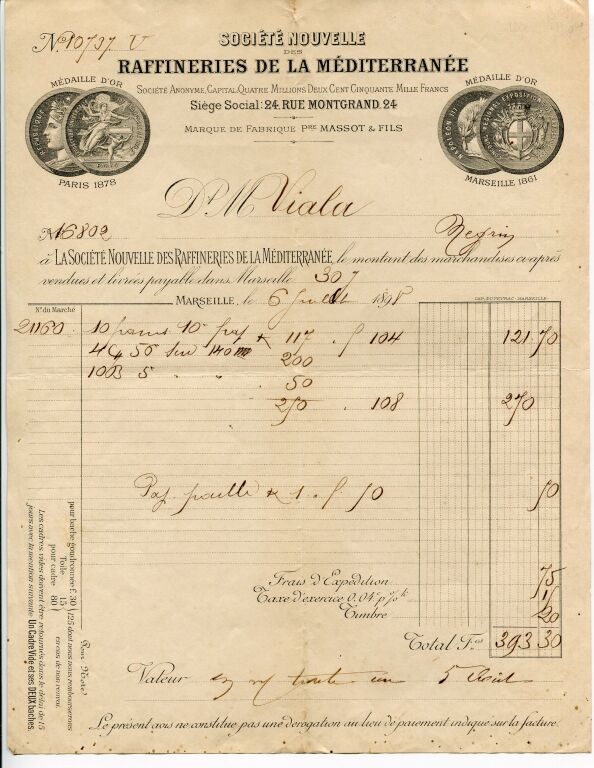 No 10737 V
SOCIÉTÉ NOUVELLE
DES
RAFFINERIES DE LA MÉDITERRANÉE
SOCIÉTÉ ANONYME, CAPITAL QUATRE MILLIONS DEUX CENT CINQUANTE MILLE FRANCS
Siège Social: 24. RUE MONTGRAND. 24
MARQUE DE FABRIQUE Pre MASSOT & FILS
MÉDAILLE D'OR
PARIS 1878
MÉDAILLE D'OR
NAPOLEON III
MARSEILLE 1861
Dt M Viala
No 16802
à LA SOCIÉTÉ NOUVELLE DES RAFFINERIES DE LA MÉDITERRANÉE, le montant des marchandises ci-après
vendues et livrées payable dans Marseille. 307
MARSEILLE, le 6 Juillet 1898
CAP. DUPEYRAC - MARSEILLE
No du Marché
21160 10 10 K 117 . f 104 121 70
4C 50 sur 140 200
10B 5 " " 50
250 . 108 270
paille K 1 . f. 50 50
Frais d'Expédition 75
Taxe d'exercice 0.04c p % k 15
Timbre 20
Total Fcs 393 30
Valeur en 5 Août
Le présent avis ne constitue pas une dérogation au lieu de paiement indiqué sur la facture.
Pour Note
pour bache goudronnée f. 30
Toile 15
pour cadre 80
125 dont nous nous rembourserons
en cas de non renvoi.
Les cadres vides doivent être retournés dans le délai de 15
jours avec la mention suivante: Un Cadre Vide et ses DEUX baches.